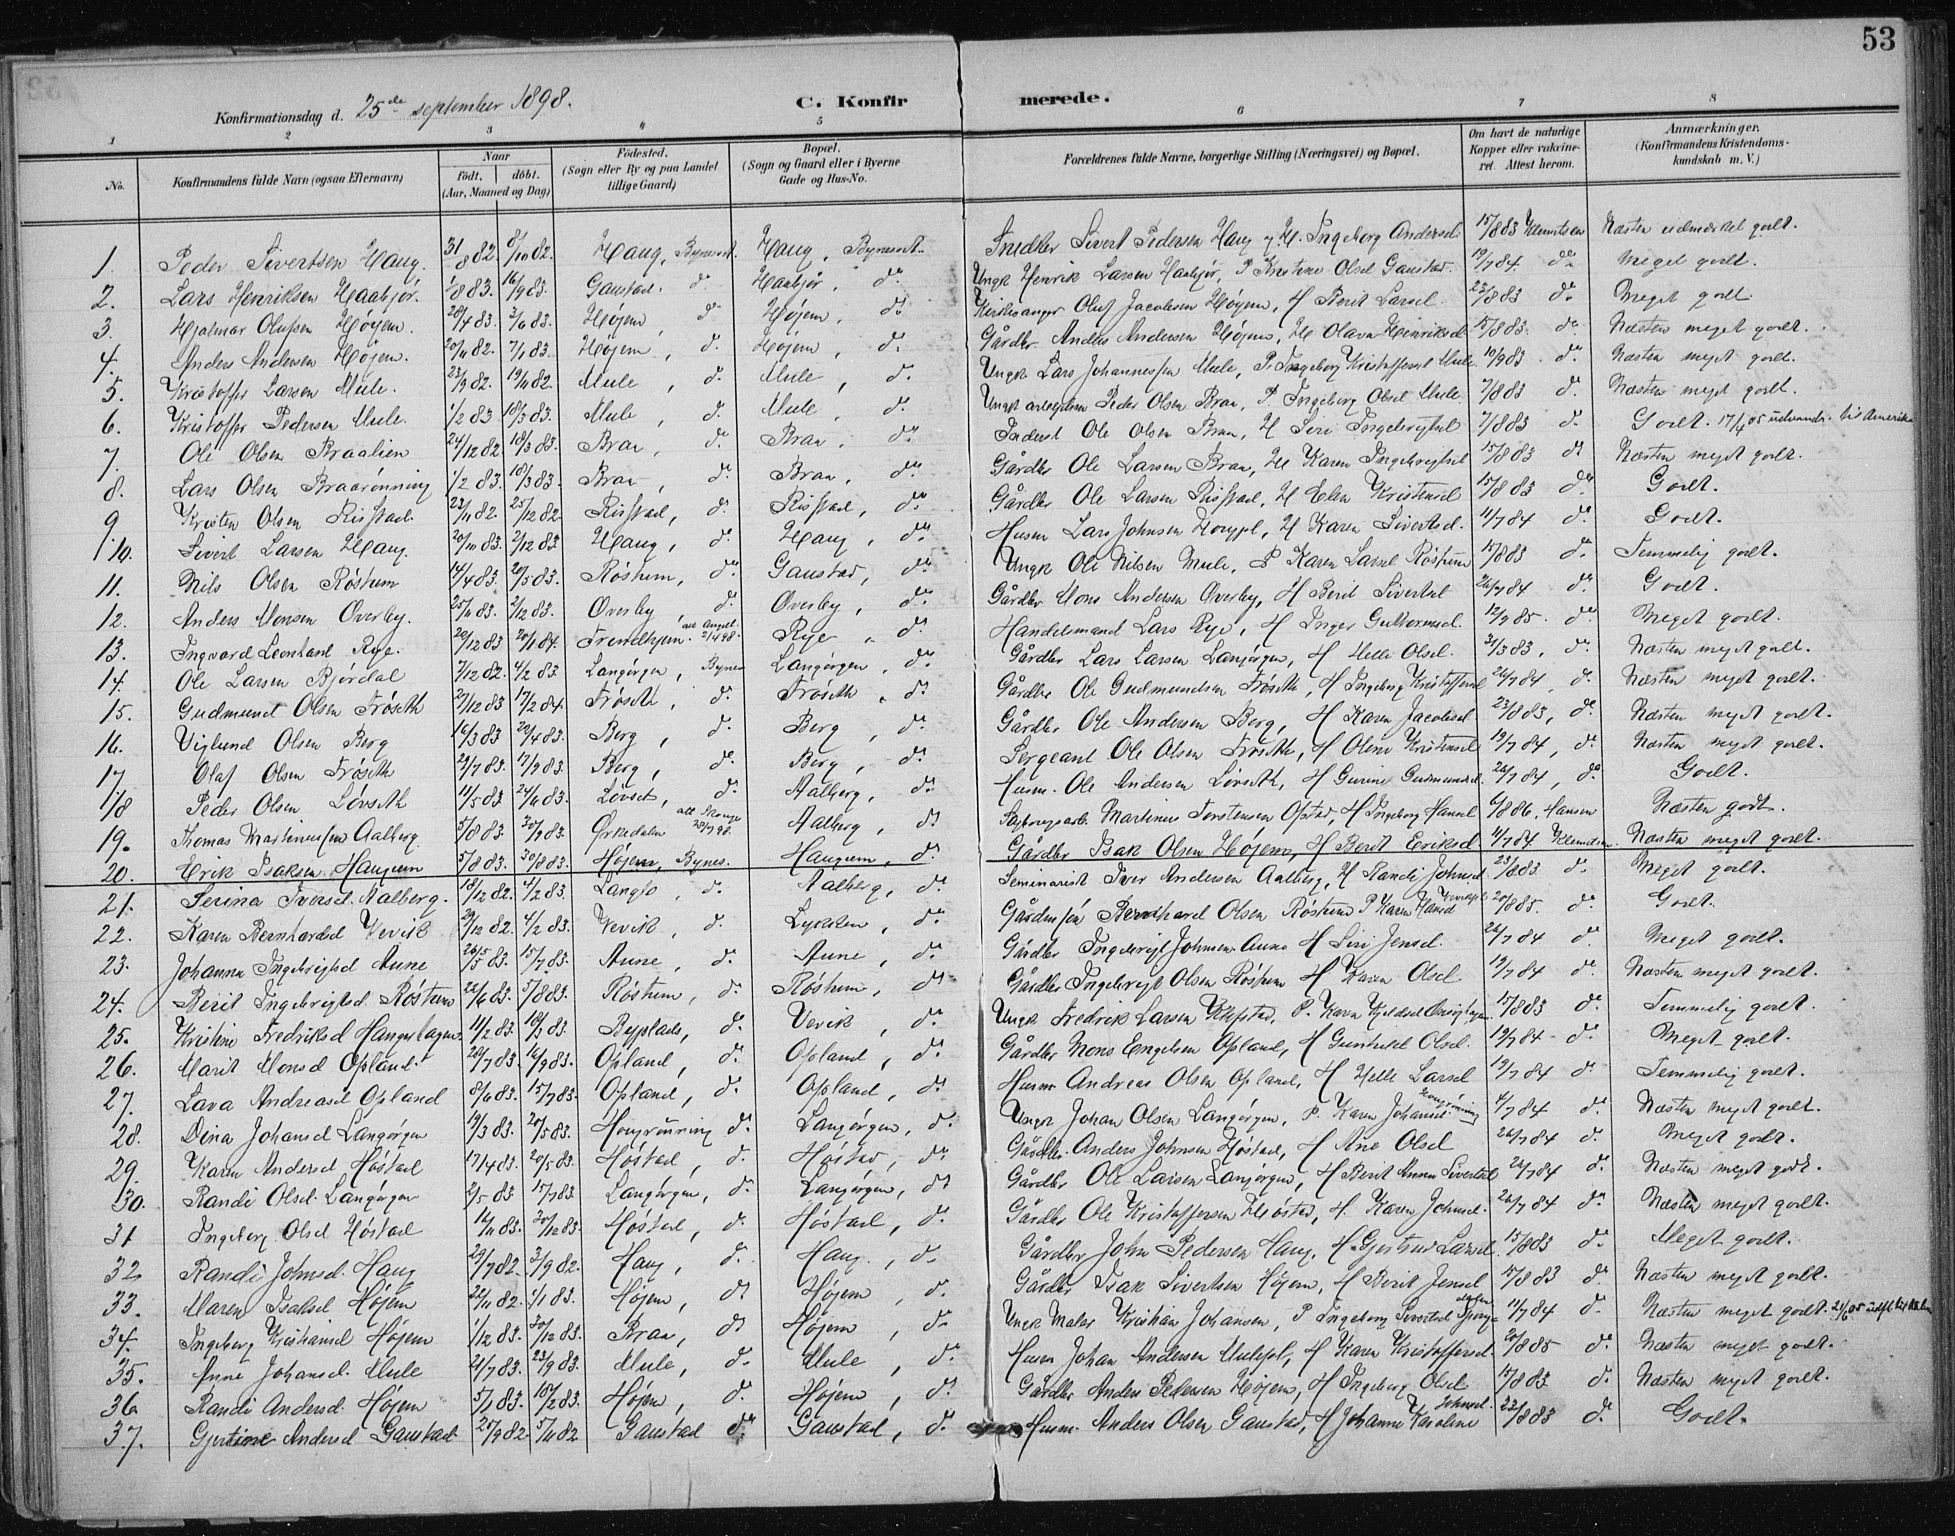 53
Konfirmationsdag d. 25de september 1898. C. Konfirmerede.
1 2 3 4 5 6 7 8
No. Konfirmandens fulde Navn (ogsaa Efternavn) Naar født. døbt. (Aar, Maaned og Dag) Fødested. (Sogn eller By og paa Landet tillige Gaard) Bopæl. (Sogn og Gaard eller i Byerne Gade og Hus-No. Forældrenes fulde Navne, borgerlige Stilling (Næringsvei) og Bopæl. Om havt de naturlige Kopper eller vakcineret. Attest herom. Anmærkninger. (Konfirmandens Kristendomskundskab m. V.)
1. Peder Sivertsen Haug. 31/8 82 8/10 82. Haug, Bynesset. Haug, Bynesset. Sivert Pedersen Haug og H. Ingeborg Andersd. 15/8 83 Klemetsen Næsten udmærket godt.
2. Lars Henriksen Haabjør. 1/8 83. 16/9 83. Gaustad. do Haabjør, do Ungk. Henrik Larsen Haabjør, P. Kirstine Olsd Gaustad. 19/7 84. do Meget godt.
3. Hjalmar Olufsen Høyem. 28/4 83. 3/6 83. Høyem, do Højem, do Kirkesanger Oluf Jacobsen Høyem, H. Berit Larsd. 23/8 83 do Meget godt
4. Anders Andersen Højem. 20/11 82. 7/1 83. Højem, d. Højem, d. Gårdbr. Anders Andersen Højem, H. Olava Henriksd. 15/8 83. do Næsten meget godt.
5. Kristoffer Larsen Mule. 23/9 82. 19/11 82. Mule, d. Mule, d. Ungk. Lars Johannessen Mule, P. Ingeborg Kristoffersd Mule. 10/9 83 d. Næsten meget godt.
6. Kristoffer Pedersen Mule. 1/2 83 18/3 83. Mule, d. Mule, d. Ungk. Peder Olsen Braa, P. Ingeborg Olsd Mule. 7/8 83 do Næsten meget godt.
7. Ole Olsen Braalien 24/12 82 18/3 83. Braa, do Braa, do Inderst Ole Olsen Braa, H Siri Ingebrigtsd 7/8 83 d. Godt. 17/4 05 udvandr. til Amerika
8. Lars Olsen Braarønning 1/2 83. 18/3 83. Braa, d. Braa, do Gårdbr Ole Larsen Braa, H Karen Ingebrigtsd. 15/8 83 do Næsten meget godt.
9. Kristen Olsen Risstad. 23/11 82. 25/12 82. Risstad, do Risstad, do Gårdbr Ole Larsen Risstad, H Elen Kristensd 15/8 83 do Godt.
10. Sivert Larsen Haug. 20/10 83. 2/12 83 Haug, do Haug, do Husm Lars Johnsen, H Karen Sivertsd. 11/7 84 do Godt.
11. Nils Olsen Røstum 14/4 83. 20/5 83. Røstum, do Gaustad, do Ungk Ole Nilsen Mule, P Karen Larsd Røstum 15/8 83 do Temmelig godt.
12. Anders Monsen Overby. 25/11 83. 2/12 83. Overby, d. Overby, do Gårdbr Mons Andersen Overby, H Berit Sivertsd. 26/7 84 do Godt.
13. Ingvard Leonhard Rye. 29/12 83 20/1 84. Trondhjem. 21/4 98. Rye, d. Handelsmand Lars Rye, H Inger Guttormsd. 12/9 85. do Meget godt.
14. Ole Larsen Bjørdal 7/12 82. 4/2 83. Langørgen, Bynes Langørgen, do Gårdbr Lars Larsen Langørgen, H Helle Olsd. 31/3 83, do Næsten meget godt.
15. Gudmund Olsen Frøseth 27/12 83 17/2 84. Frøseth, d. Frøseth, d. Gårdbr Ole Gudmundsen Frøseth, H Ingeborg Kristoffersd 26/7 84, d. Næsten meget godt.
16. Viglund Olsen Berg 16/3 83 29/4 83. Berg, d. Berg, d. Gårdbr Ole Andersen Berg, H Karen Jacobsd 23/8 83, do Næsten meget godt.
17 Olaf Olsen Frøseth 29/7 83. 17/9 83. Berg, d. Berg, d. Sergeant Ole Olsen Frøseth, H Oline Kristensd 19/7 84, d. Næsten meget godt.
18 Peder Olsen Løvseth 11/5 83. 24/6 83. Løvset, do Aalberg, do Husm. Ole Andersen Løvseth, H Gurine Gudmundsd. 26/7 84, do Godt.
19. Thomas Martinussen Aalberg. 5/8 83. 30/9 83. Ørkedalen Aalberg, do Martinus Torstensen Opstad, H Ingeborg Hansd 6/8 86, Hansen Næsten godt.
20. Erik Isaksen Haugum 5/8 83. 30/8 83. Højem, Bynes. Haugum, d. Gårdbr Isak Olsen Højem, H Berit Eriksd. 11/7 84 Klemetsen Næsten meget godt.
21. Serina Iversd. Aalberg. 18/12 82. 4/2 83. Langlo, d. Aalberg, do Seminarist Iver Andersen Aalberg, H Randi Johnsd. 23/8 83. do Meget godt.
22. Karen Bernhardsd Vevik 29/12 82. 4/2 83. Vevik, d. do Gårdmssøn Bernhard Olsen Røstum P Karen Hansd 20/8 85. do Godt.
23. Johanna Ingebrigtsd Aune 26/5 83. 15/7 83. Aune, d. Aune, do Gårdbr Ingebrigt Johnsen Aune H Siri Jensd. 26/7 84 d. Meget godt.
24. Berit Ingebrigtsd. Røstum 22/6 83. 5/8 83. Røstum, d. Røstum, do Gårdbr Ingebrigt Olsen Røstum H Karen Olsd 19/7 84 do Næsten meget godt.
25. Kristine Fredriksd Haugerhagen 11/2 83. 18/3 83. do Vevik, do Ungk Fredrik Larsen, P. Karen 15/8 83 do Temmelig godt.
26. Marit Monsd Opland. 20/7 83. 16/9 83. Opland, do Opland, do Gårdbr Mons Engelsen Opland, H Gunhild Olsd. 19/7 84 do Meget godt.
27. Lava Andreasd Opland 8/6 83. 15/7 83. Opland, do Opland, do Husm Andreas Olsen Opland, H Helle Larsd 19/7 84 do Temmelig godt.
28. Dina Johansd Langørgen 19/3 83. 20/5 83. d. Langørgen, d. Ungk. Johan Olsen Langørgen, P. Karen Johansd. 11/7 84 do Næsten meget godt.
29. Karen Andersd Høstad 17/4 83. 20/5 83. Høstad, d. Høstad, do Gårdbr. Anders Johnsen Høstad, H Ane Olsd 26/7 84 d. Meget godt.
30. Randi Olsd. Langørgen 2/5 83 15/7 83. Langørgen, d. Langørgen, do Gårdbr Ole Larsen Langørgen, H Berit Anna Sivertsd 26/7 84 d. Næsten meget godt.
31 Ingeborg Olsd Høstad 16/11 83. 30/12 83. Høstad, d. Høstad, d. Gårdbr Ole Kristoffersen Høstad, H. Karen Johnsd. 26/7 84 do Næsten meget godt.
32 Randi Johnsd. Haug 29/7 82. 3/9 82. Haug, d. Haug, d. Gårdbr John Pedersen Haug. H. Gjertrud Larsd. 15/8 83 do Meget godt.
33. Maren Isaksd Højem 22/11 82. 1/1 83. Højem, do Højem, d. Gårdbr Isak Sivertsen Højem, H Berit Jensd 15/8 83 do Næsten meget godt.
34. Ingeborg Kristiansd Højem 1/12 83. 30/12 83. Braa, do Højem, do Ungk Maler Kristian Johansen, P Ingeborg Sivertsd 11/7 84 d. Næsten meget godt.
35. Anne Johansd. Mule 21/7 83. 23/9 83. Mule, d. Mule, do Husm Johan Andersen Mulepl, H Karen Kristoffersd. 20/8 85 do Næsten meget godt.
36 Randi Andersd. Højem 5/1 83. 18/2 83. Højem, d. Højem, d. Gårdbr Anders Pedersen Højem, H Ingeborg Olsd 15/8 83 d. Næsten meget godt.
37. Gjertine Andersd Gaustad 25/9 82. 5/11 82 Gaustad do Gaustad, d. Husm. Anders Olsen Gaustad, H Johanna Karoline Johnsd. 22/8 83 d. Godt.